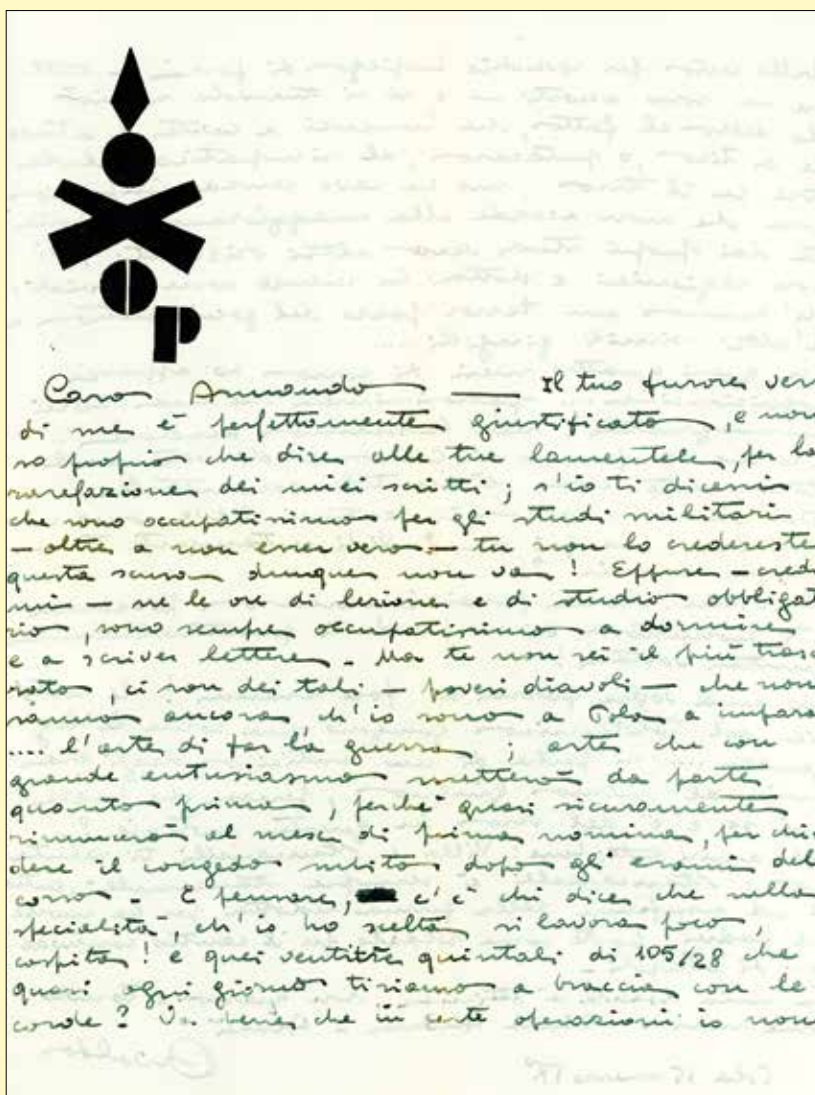 Caro Armando — Il tuo furore ver
di me è perfettamente giustificato, e non
so proprio che dire alle tue lamentele, per la
rarefazione dei miei scritti; s'io ti dicessi
che sono occupatissimo per gli studi militari
- oltre a non esser vero - tu non lo crederesti
questa scusa dunque non va! Eppure - credi
mi - ne le ore di lezione e di studio obbligat
rio, sono sempre occupatissimo a dormire
e a scriver lettere. Ma te non sei il più trasc
rato, ci son dei tali - poveri diavoli - che non
sanno ancora ch'io sono a Pola a impara
.... l'arte di far la guerra; arte che con
grande entusiasmo metterò da parte
quanto prima, perchè quasi sicuramente
rinuncerò al mese di prima nomina, per chie
dere il congedo subito dopo gli esami del
corso - E pensare, c'è chi dice che nella
specialità, ch'io ho scelta si lavora poco,
caspita! e quei ventitre quintali di 105/28 che
quasi ogni giorno tiriamo a braccia con le
corde? Va bene che in certe operazioni io non